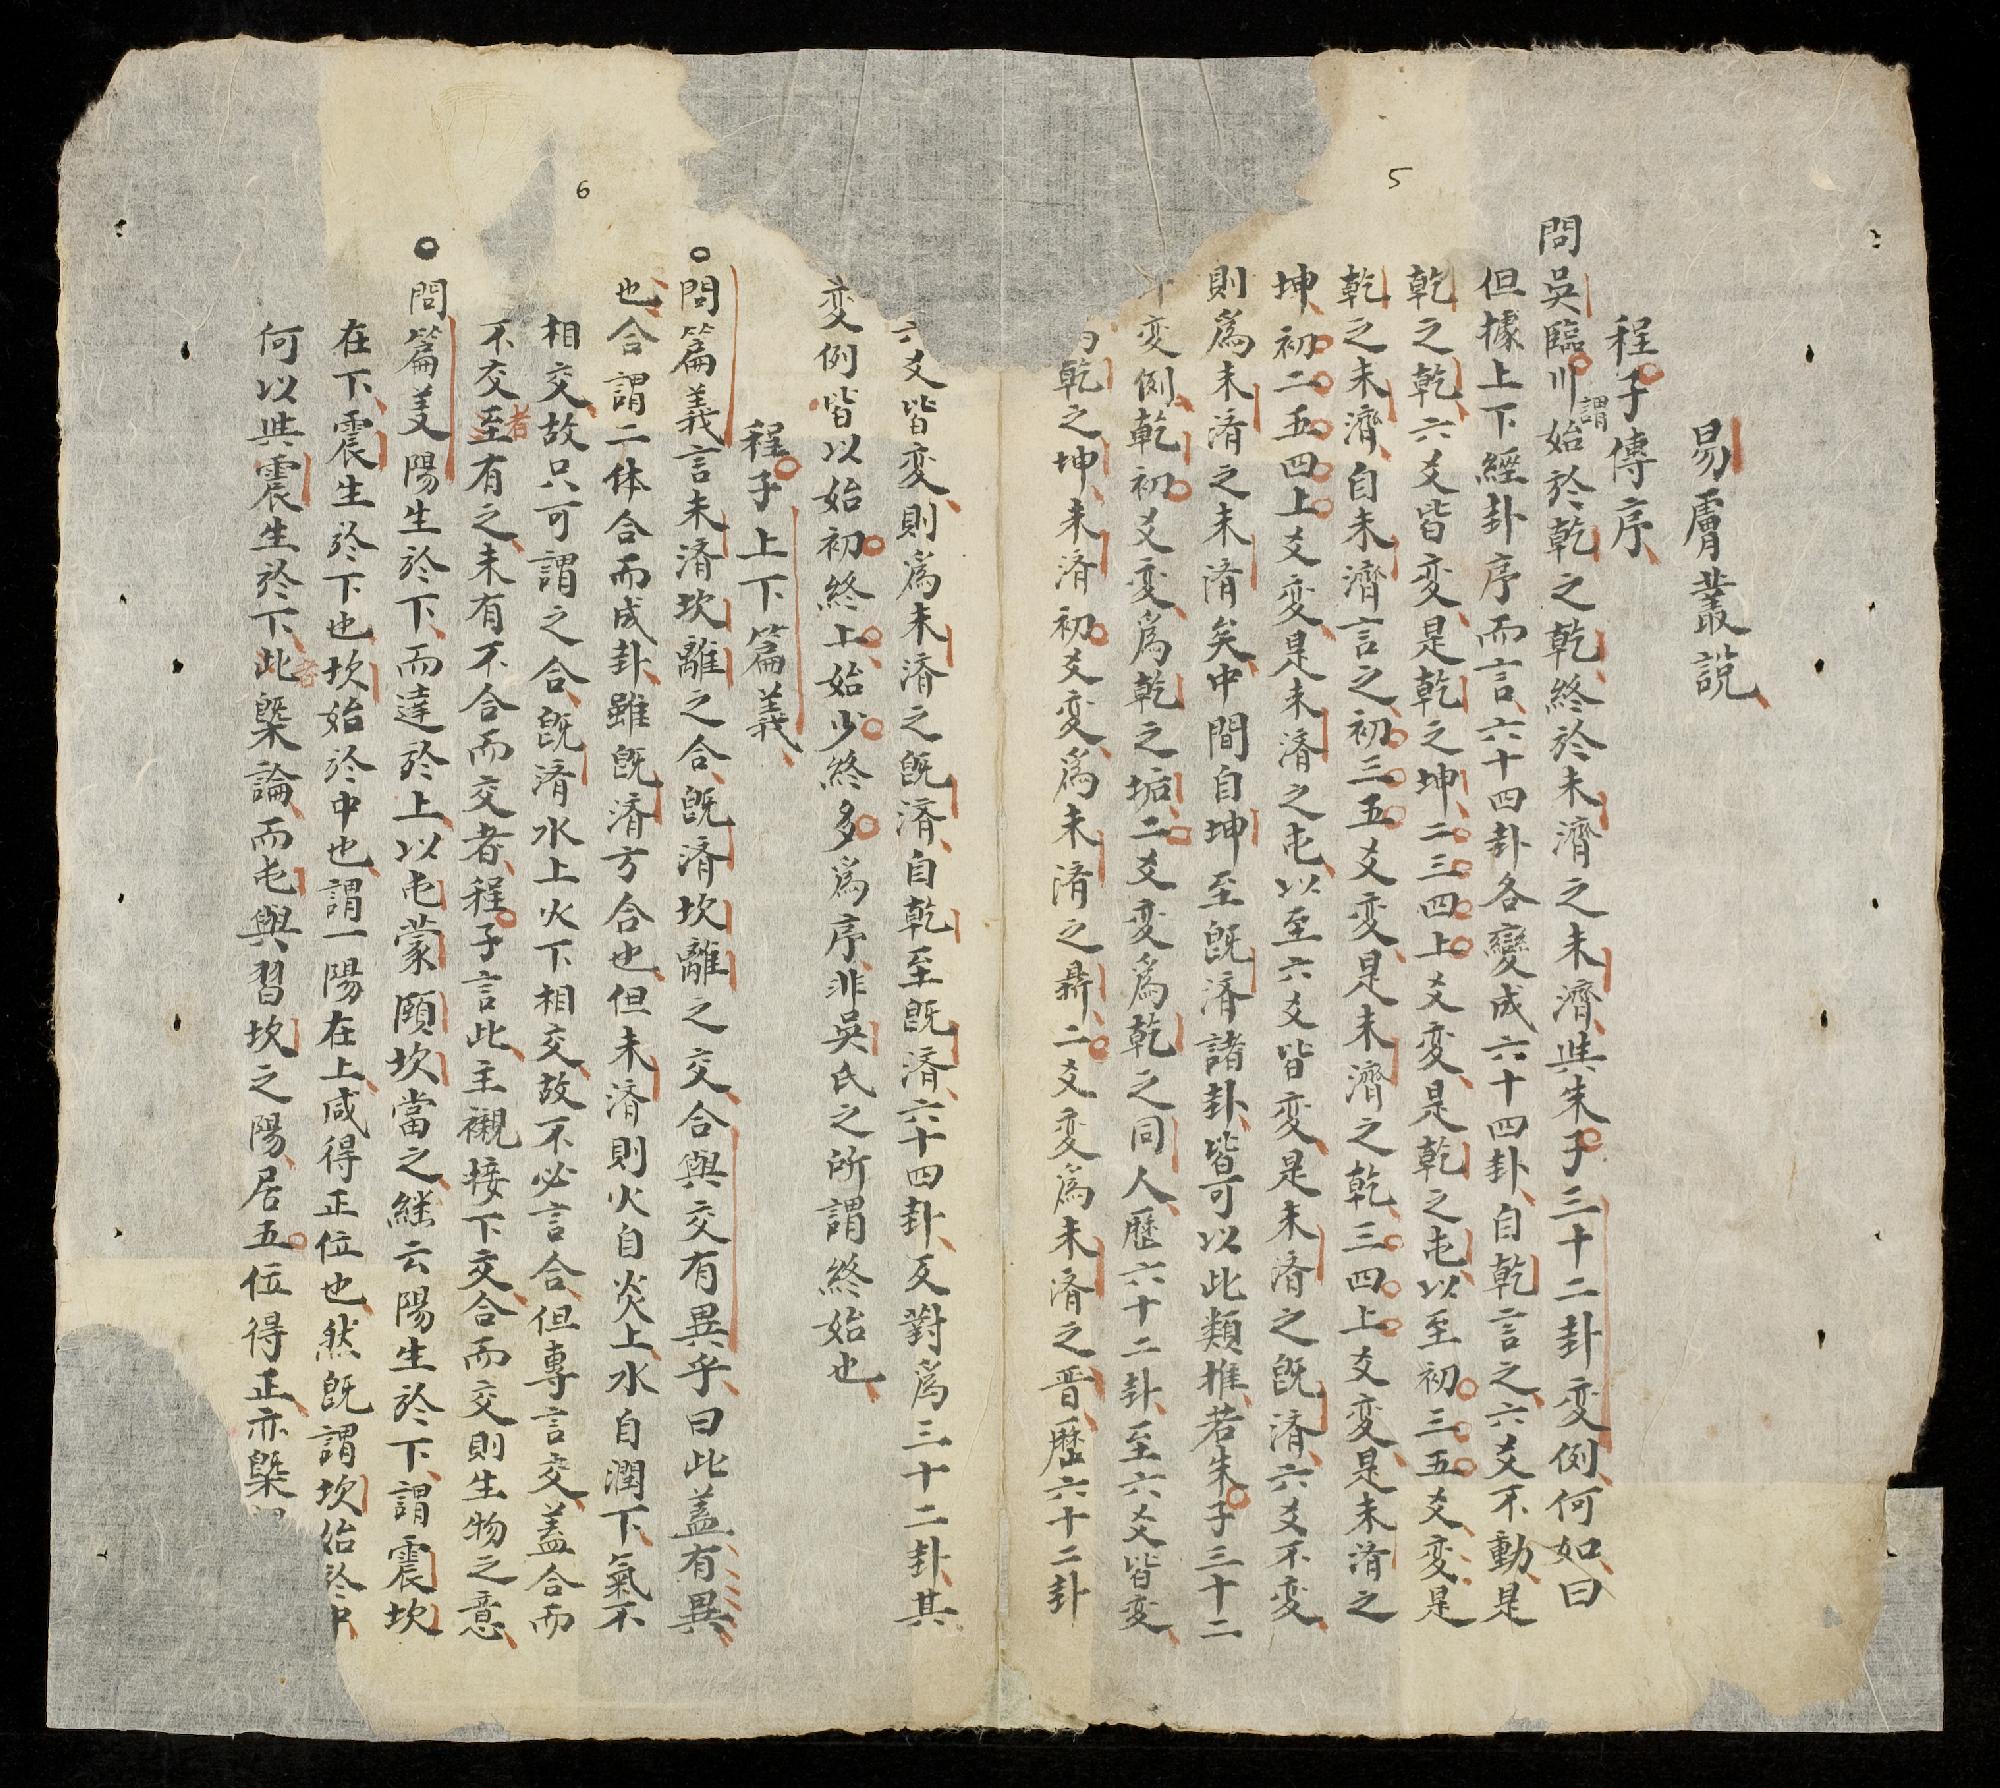 5
易膚叢說
程子傳序
問吳臨川謂始於乾之乾終於未濟之未濟與朱子三十二卦変例何如曰
但據上下經卦序而言六十四卦各變成六十四卦自乾言之六爻不動是
乾之乾六爻皆変是乾之坤二三四上爻変是乾之屯以至初三五爻変是
乾之未濟自未濟言之初三五爻変是未濟之乾三四上爻変是未済之
坤初二五四上爻変是未済之屯以至六爻皆変是未済之既済六爻不変
則爲未済之未済矣中間自坤至既済諸卦皆可以此類推若朱子三十二
変例乾初爻変爲乾之垢二爻変爲乾之同人歷六十二卦至六爻皆変
乾之坤未済初爻変爲未済之鼎二爻変爲未済之晋歷六十二卦
六爻皆変則爲未済之既済自乾至既済六十四卦反對爲三十二卦其
変例皆以始初終上始少終多爲序非吳氏之所謂終始也
6
程子上下篇義
○問篇義言未済坎離之合既済坎離之交合與交有異乎曰此盖有異
也合謂二体合而成卦雖既済方合也但未済則火自炎上水自潤下氣不
相交故只可謂之合既済水上火下相交故不必言合但專言交盖合而
不交至者有之未有不合而交者程子言此主襯接下交合而交則生物之意
○問篇义陽生於下而達於上以屯蒙頤坎當之継云陽生於下謂震坎
在下震生於下也坎始於中也謂一陽在上咸得正位也然既謂坎始於中
何以與震生於下此槩論而屯與習坎之陽居五位得正亦槩